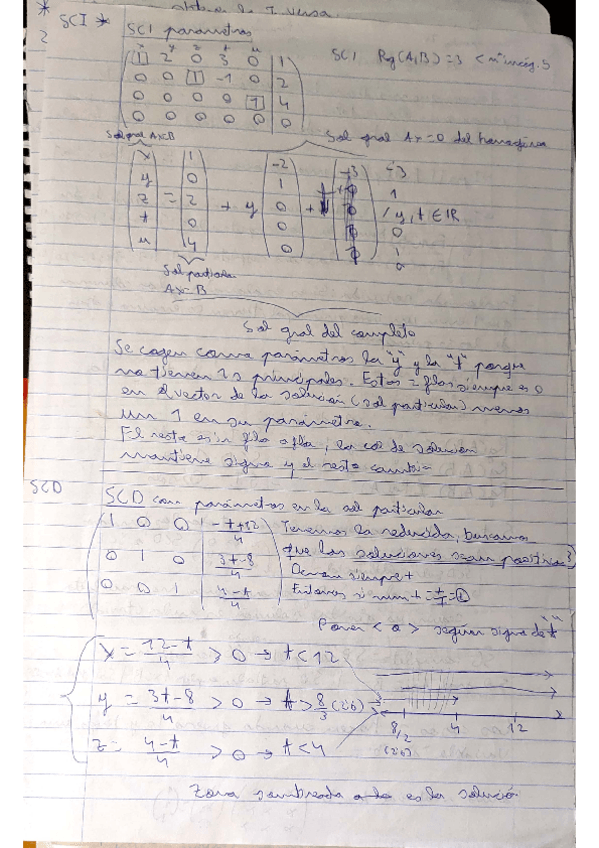 * SCI *
SCI parámetros
SCI Rg(A,B)=3 < nº incóg. 5
x y z t u
1 2 0 3 0 | 1
0 0 1 -1 0 | 2
0 0 0 0 1 | 4
0 0 0 0 0 | 0
Sol gral AX=B
Sol gral Ax=0 del homogénea
x 1 -2 -3 -3
y 0 1 0 1
z = 2 + y 0 + t 0 / y, t ∈ IR
t 0 0 0
u 4 0 1
0
Sol particular
AX=B
Sol gral del completo
Se cogen como parámetros la "y" y la "t" porque
no tienen 1s principales. Estas 2 filas siempre es 0
en el vector de la solución (sol particular) menos
un 1 en su parámetro.
El resto es in fila a fila, la col de solución
mantiene signo y el resto cambia
SCD
SCD con parámetros en la sol particular
1 0 0 | -t+12/4
0 1 0 | 3t-8/4
0 0 1 | 4-t/4
Tenemos la reducida, buscamos
que las soluciones sean positivas
Denom siempre +
Entonces si num + = +/+ = +
Poner < o > según signo de "t"
x = 12-t/4 > 0 → t < 12
y = 3t-8/4 > 0 → t > 8/3 (2.6) →
z = 4-t/4 > 0 → t < 4
8/2 4 12
(2.6)
Zona sombreada es la solución